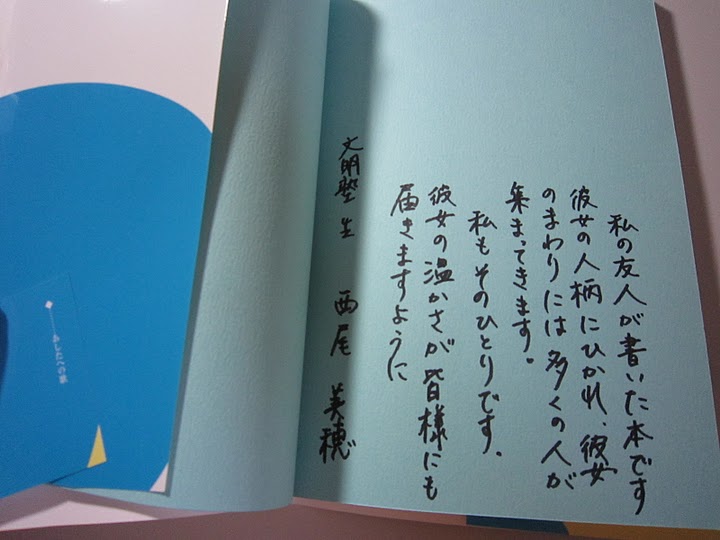 私の友人が書いた本です
彼女の人柄にひかれ、彼女
のまわりには多くの人が
集まってきます。
私もそのひとりです。
彼女の温かさが皆様にも
届きますように
文明塾生 西尾 美穂
あしたへの旅